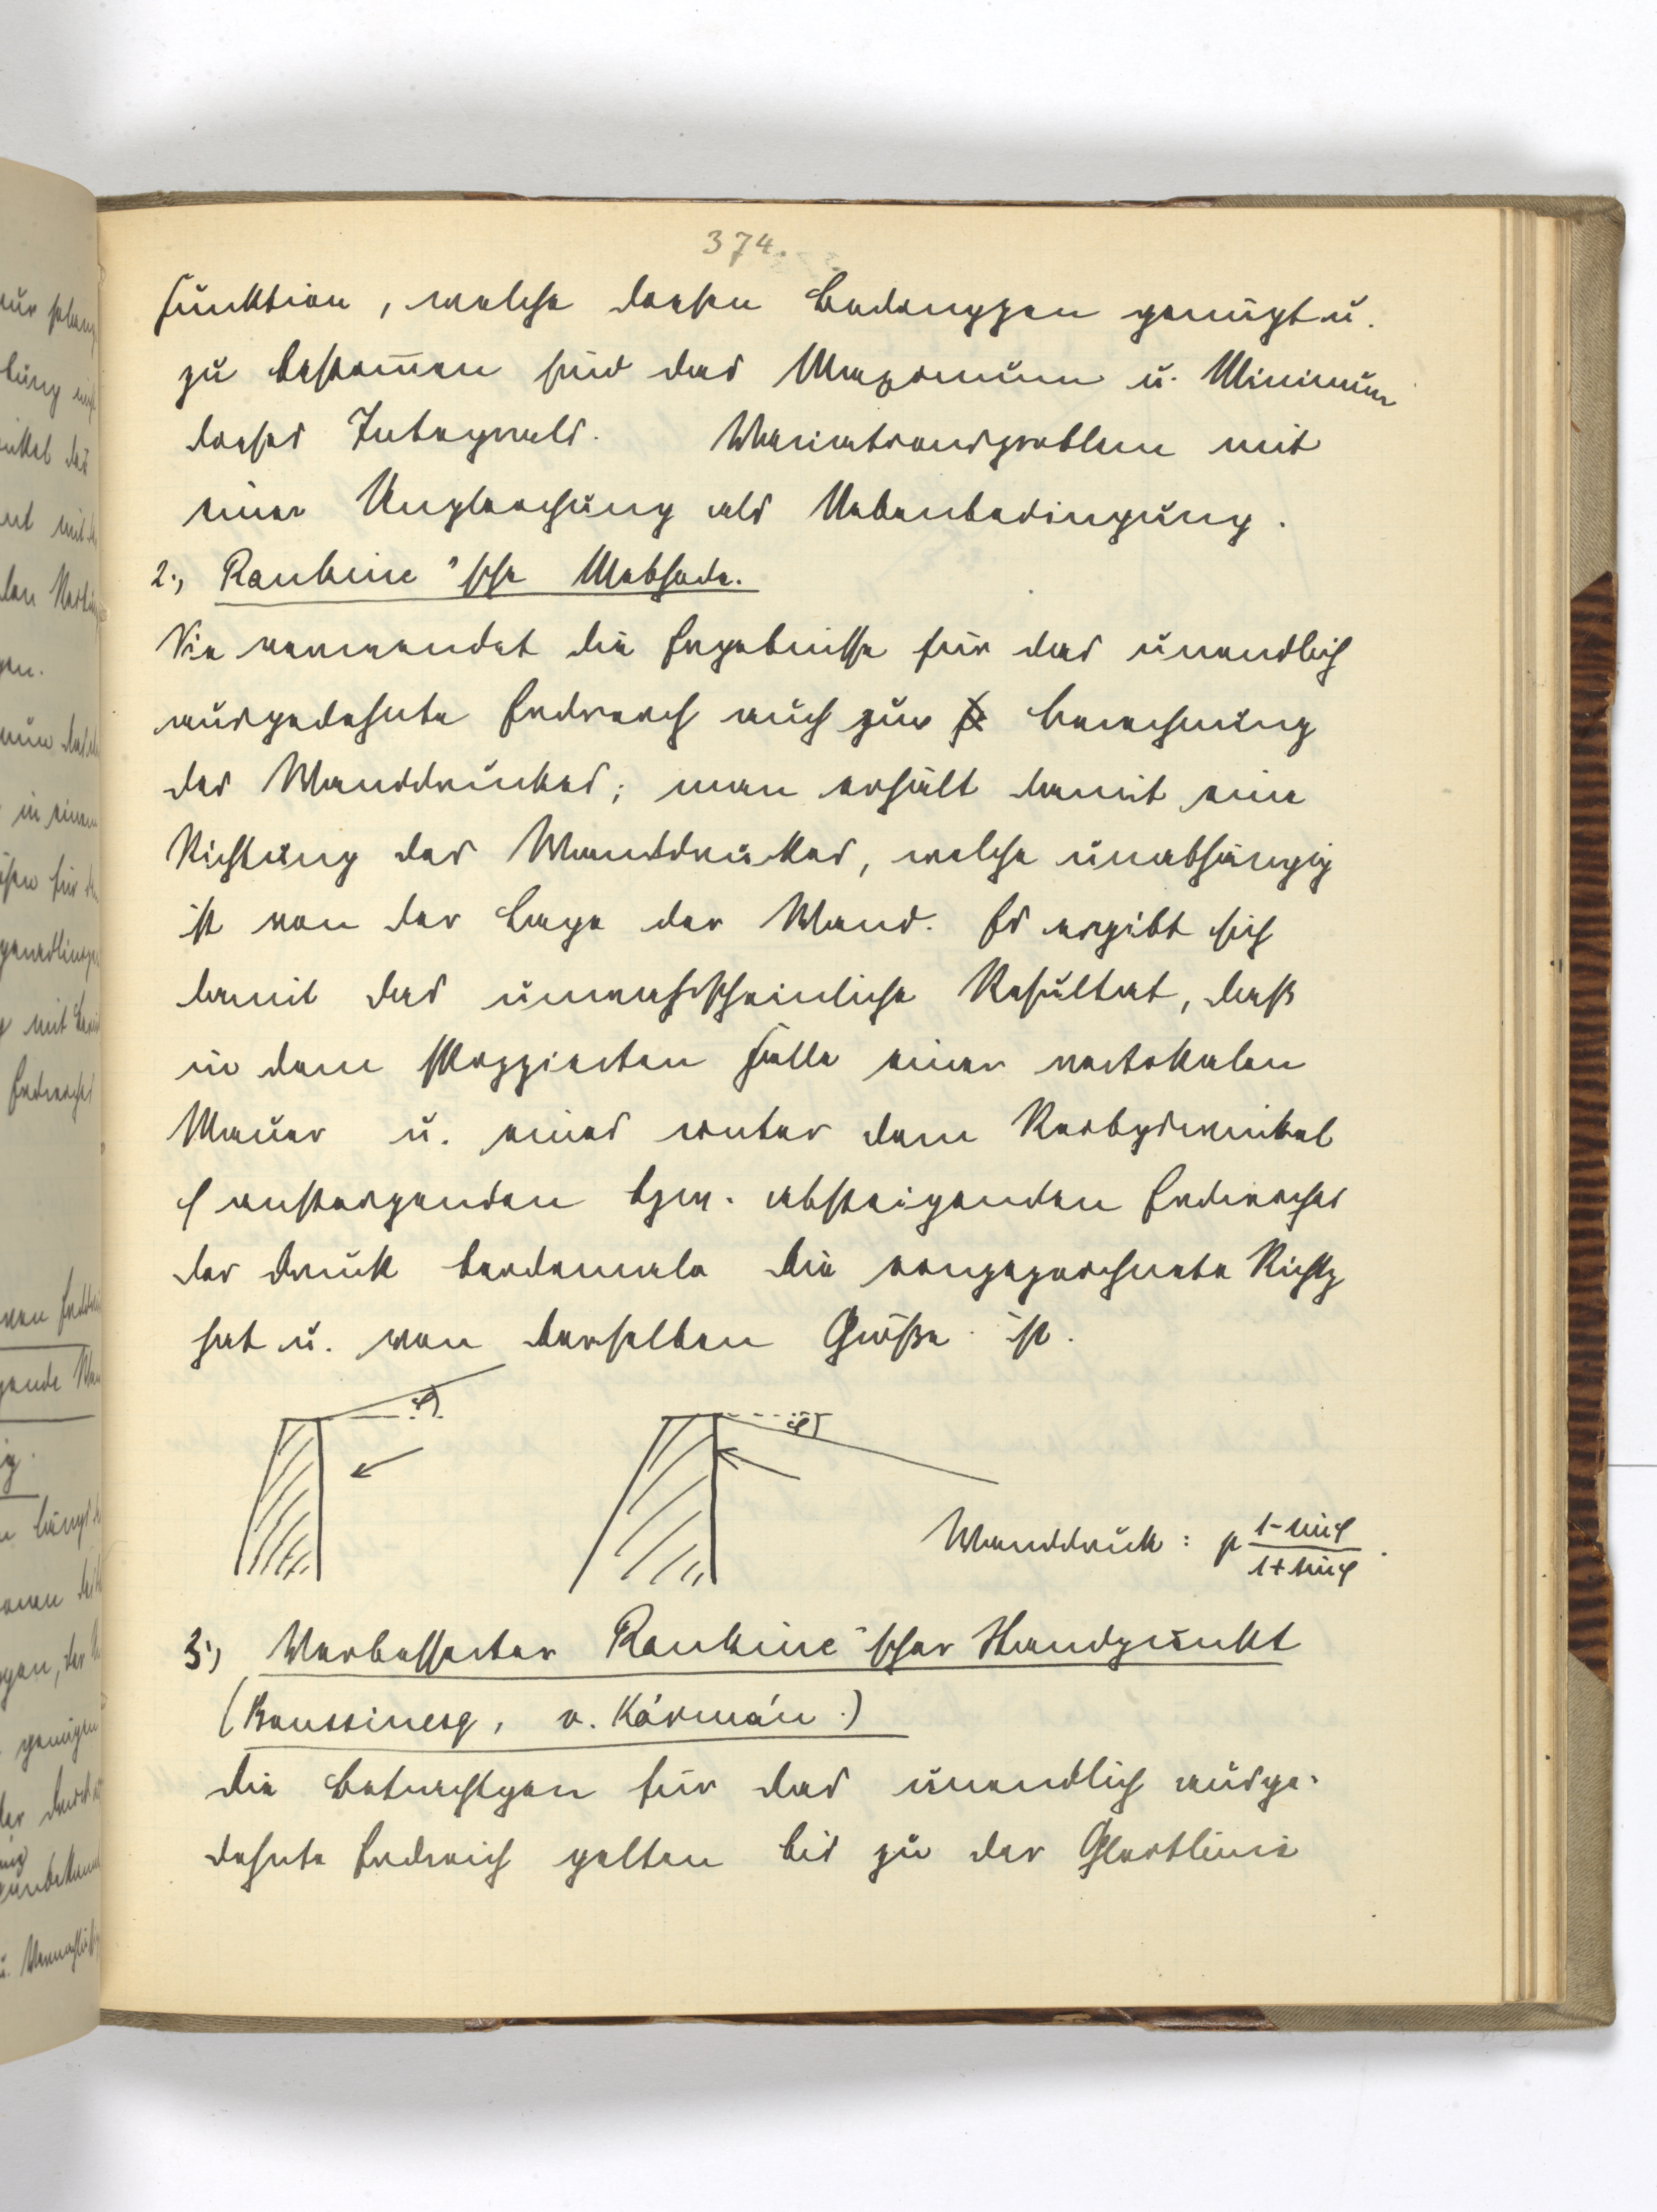 374.
Funktion, welche diesen Bedinggen genügt u.
zu bestim̅en sind das Maximum u. Minimum
dieses Integrals. Variationsproblem mit
einer Ungleichung als Nebenbedingung.
2., Rankine'sche Methode.
Sie verwendet die Ergebnisse für das unendlich
ausgedehnte Erdreich auch zur Berechnung
des Wanddruckes; man erhält damit eine
Richtung des Wanddruckes, welche unabhängig
ist von der Lage der Wand. Es ergibt sich
damit das unwahrscheinliche Resultat, daß
in dem skizzierten Falle einer vertikalen
Mauer u. eines unter dem Reibgswinkel
φ ansteigenden bzw. absteigenden Erdreiches
der Druck beidemale die eingezeichnete Richtg
hat u. von derselben Größe ist.
φ φ
Wanddruck: p (1-sinφ)/(1+sinφ).
3., Verbesserter Rankine'scher Standpunkt
(Boussinesq, v. Kármán.)
Die Betrachtgen für das unendlich ausge-
dehnte Erdreich gelten bis zu der Gleitlinie